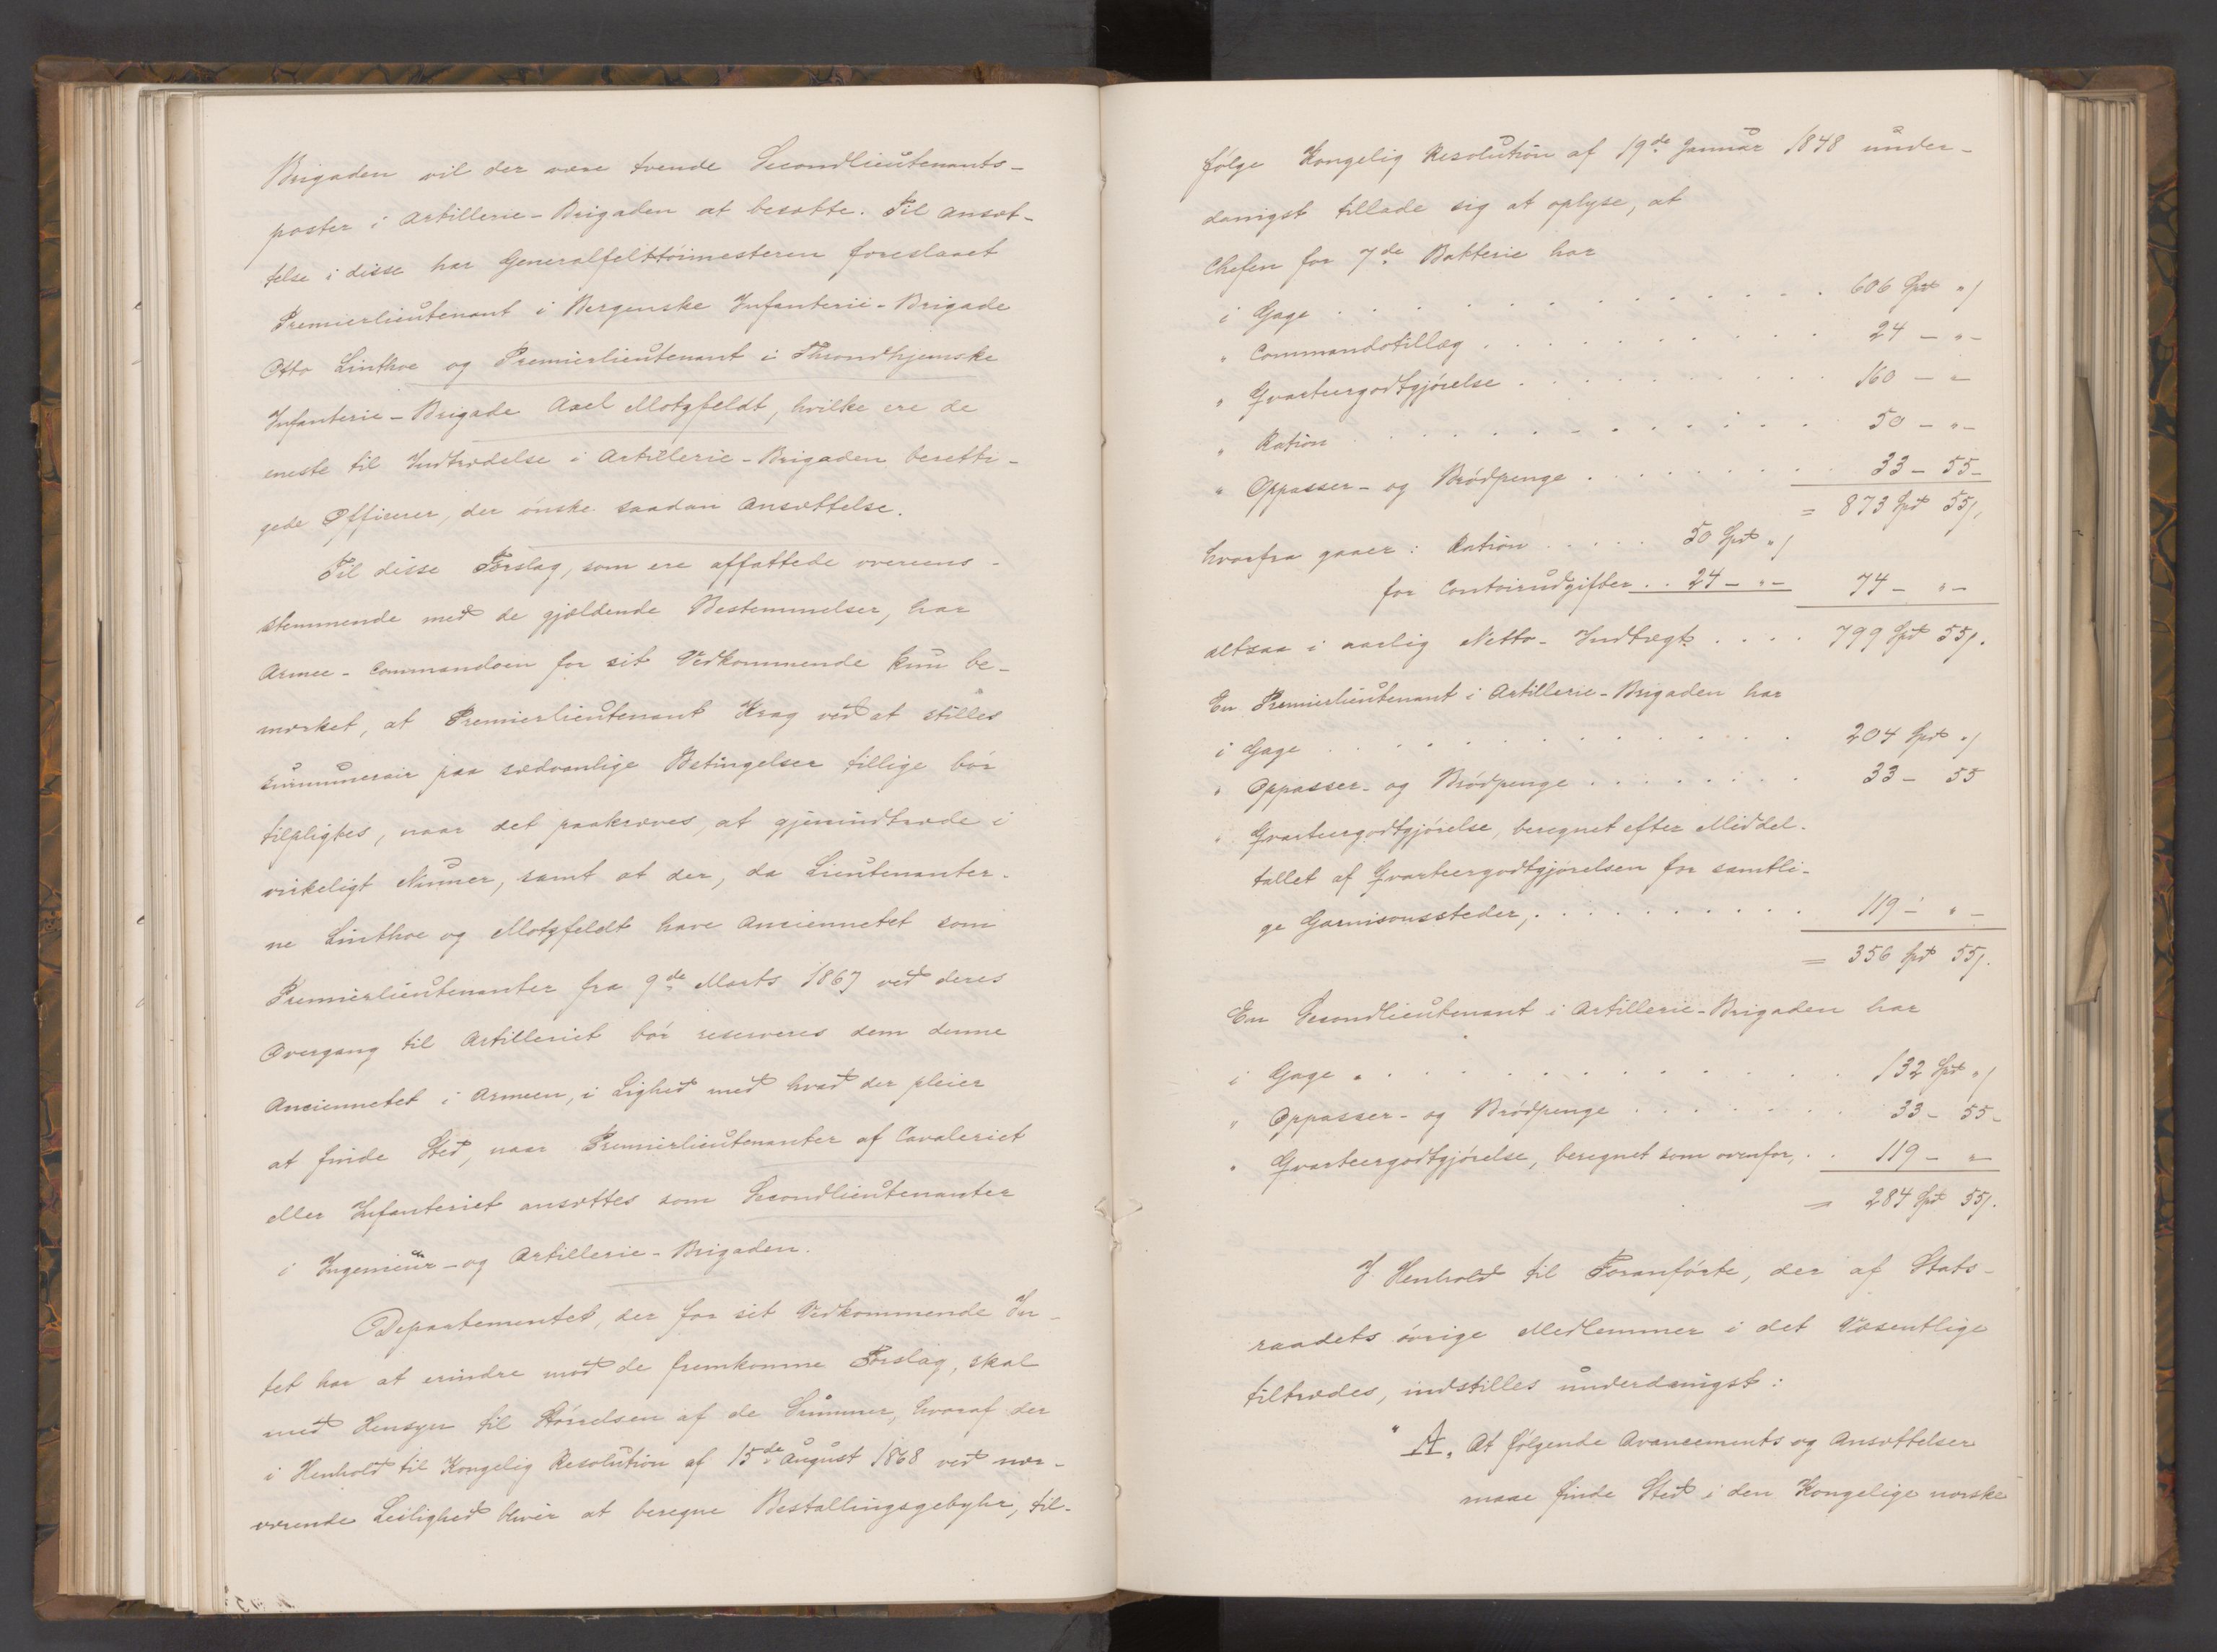 Brigaden vil der være tvende Secondlieutenants-
poster i Artillerie-Brigaden at besætte. Til Ansæt-
telse i disse har Generalfelttøimesteren foreslaaet
Premierlieutenant i Bergenske Infanterie-Brigade
Otto Linthoe og Premierlieutenant i Throndhjemske
Infanterie-Brigade Axel Motzfeldt, hvilke ere de
eneste til Indtrædelse i Artillerie-Brigaden beretti-
gede Officerer, der ønske saadan Ansættelse.
Til disse Forslag, som ere affattede overens-
stemmende med de gjældende Bestemmelser, har
Armee-Commandoen for sit Vedkommende kun be-
mærket, at Premierlieutenant Krag ved at stilles
surnumerair paa sædvanlige Betingelser tillige bør
tilpligtes, naar det paakræves, at gjenindtræde i
virkeligt Numer, samt at der, da Lieutenanter-
ne Linthoe og Motzfeldt have Anciennetet som
Premierlieutenanter fra 9de Marts 1867 ved deres
Overgang til Artilleriet bør reserveres dem denne
Anciennetet i Armeen, i Lighed med hvad der pleier
at finde Sted, naar Premierlieutenanter af Cavaleriet
eller Infanteriet ansættes som Secondlieutenanter
i Ingenieur- og Artillerie-Brigaden.
Departementet, der for sit Vedkommende In-
tet har at erindre mod de fremkomne Forslag, skal
med Hensyn til Størrelsen af de Summer, hvoraf der
i Henhold til Kongelig Resolution af 15de August 1868 ved nær-
værende Leilighed bliver at beregne Bestallingsgebyhr, til-
følge Kongelig Resolution af 19de Januar 1848 under-
danigst tillade sig at oplyse, at
Chefen for 7de Batterie har
i Gage . . . . . . . . . . 606 Spd "/
" Commandotillæg . . . . . . . . 24 - " -
" Qvarteergodtgjørelse . . . . . . . 160 - " -
" Ration . . . . . . . . . . 50 - " -
" Oppasser- og Brødpenge . . . . . . 33 - 55 -
= 873 Spd 55/.
hvorfra gaaer: Ration . . . . . 50 Spd "/
for Contoirudgifter . . 24 - " - 74 - " -
altsaa i aarlig Netto-Indtægt . . . . 799 Spd 55/.
En Premierlieutenant i Artillerie-Brigaden har
i Gage . . . . . . . . . . 204 Spd "/
" Oppasser- og Brødpenge . . . . . . . 33 - 55
" Qvarteergodtgjørelse, beregnet efter Middel-
tallet af Qvarteergodtgjørelsen for samtli-
ge Garnisonssteder, . . . . . . . . 119 - " -
= 356 Spd 55/.
En Secondlieutenant i Artillerie-Brigaden har
i Gage . . . . . . . . . . 132 Spd "/
" Oppasser- og Brødpenge . . . . . . 33 - 55 -
" Qvarteergodtgjørelse, beregnet som ovenfor, . . 119 - " -
= 284 Spd 55/.
I Henhold til Foranførte, der af Stats-
raadets øvrige Medlemmer i det Væsentlige
tiltrædes, indstilles underdanigst:
" A. At følgende Avancements og Ansættelser
maae finde Sted i den Kongelige norske